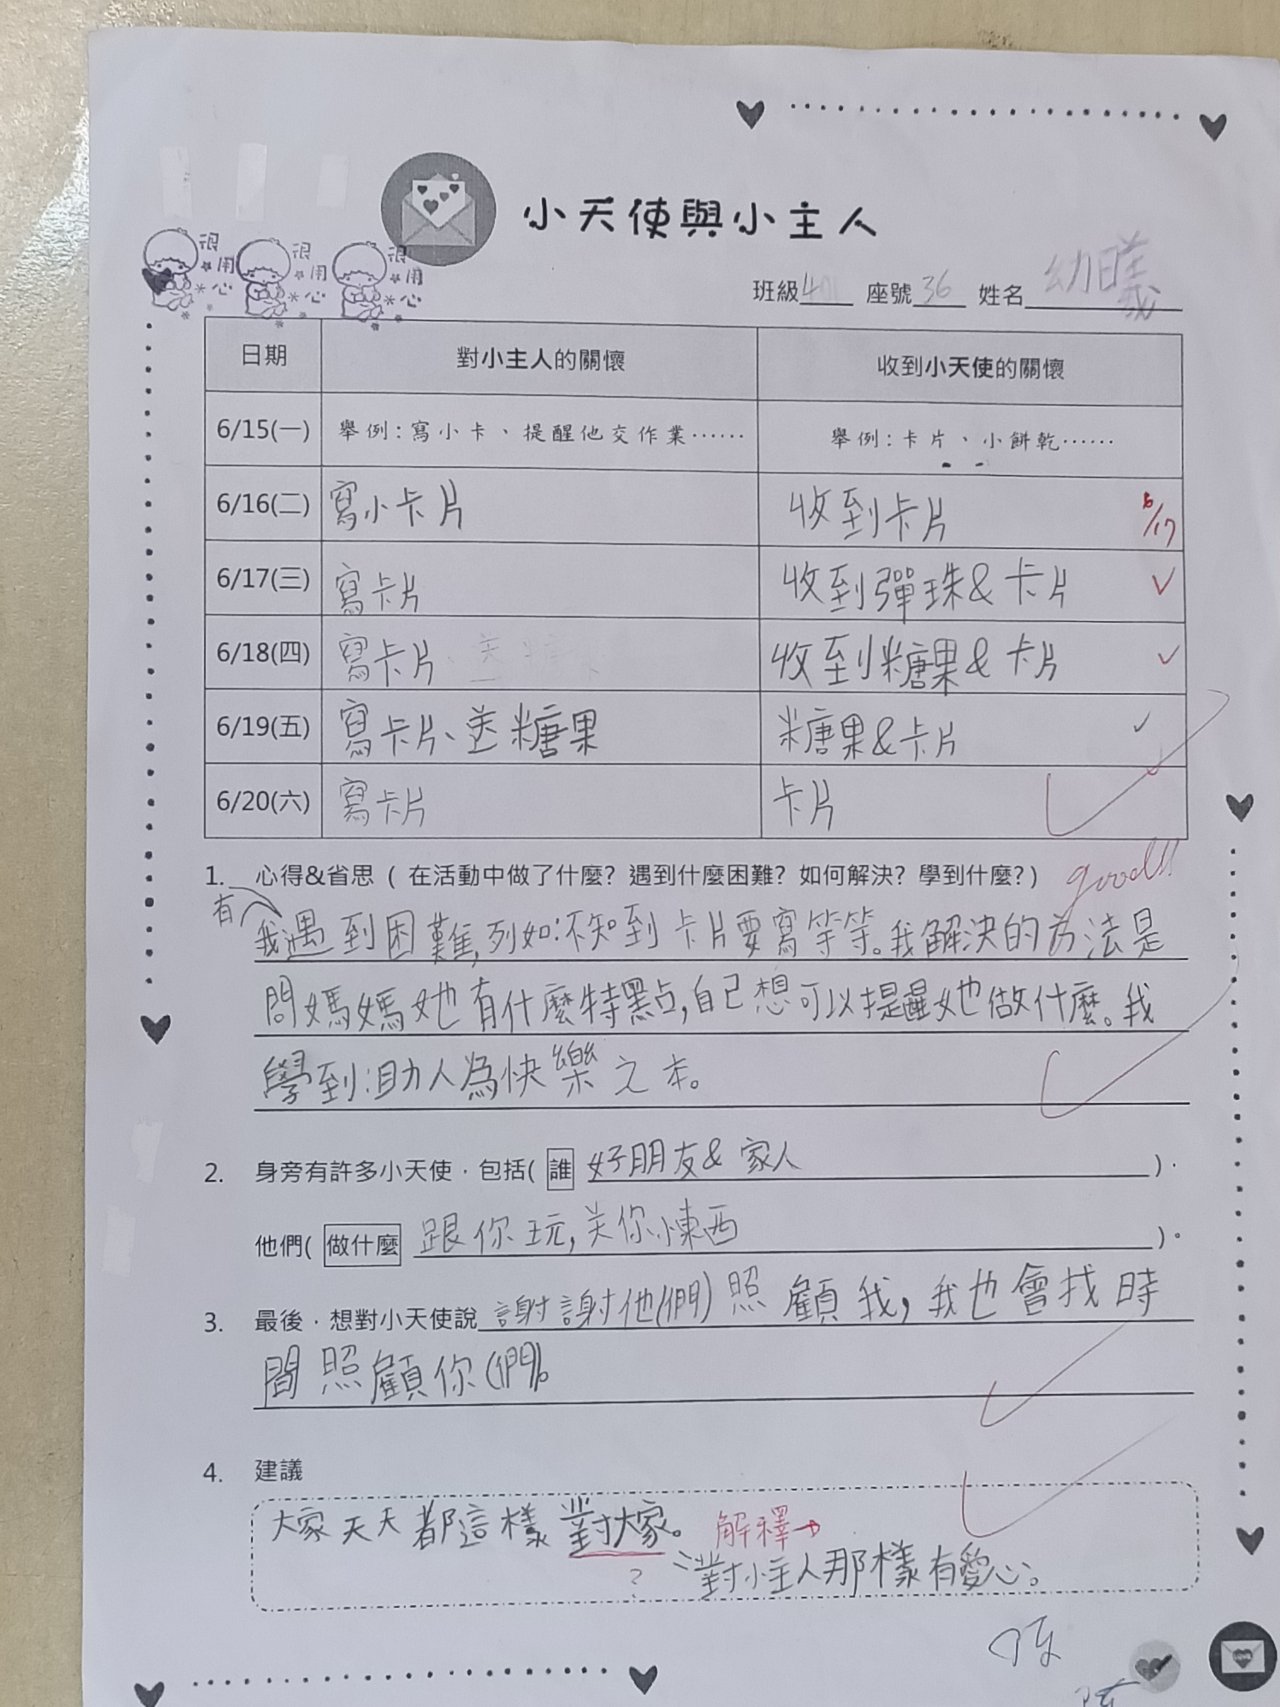 小天使與小主人
很用心 很用心 很用心
班級401 座號36 姓名幼曦
日期 對小主人的關懷 收到小天使的關懷
6/15(一) 舉例:寫小卡、提醒他交作業…… 舉例:卡片、小餅乾……
6/16(二) 寫小卡片 收到卡片 6/17
6/17(三) 寫卡片 收到彈珠&卡片
6/18(四) 寫卡片 收到糖果&卡片
6/19(五) 寫卡片、送糖果 糖果&卡片
6/20(六) 寫卡片 卡片
1. 心得&省思 ( 在活動中做了什麼? 遇到什麼困難? 如何解決? 學到什麼?)
good!!
有
我遇到困難,列如:不知到卡片要寫等等。我解決的方法是
問媽媽她有什麼特點,自己想可以提醒她做什麼。我
學到:助人為快樂之本。
2. 身旁有許多小天使,包括( 誰 好朋友& 家人 ),
他們( 做什麼 跟你玩,关你東西 )。
3. 最後,想對小天使說 謝謝他(們)照顧我,我也會找時
間照顧你(們)。
4. 建議
大家天天都這樣對大家。 解釋→
? 對小主人那樣有愛心。